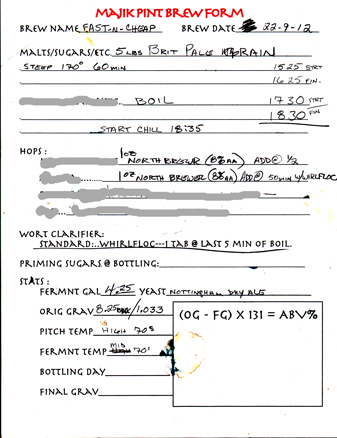 MAJIK PINT BREW FORM
BREW NAME FAST-N-CHEAP BREW DATE 22-9-12
MALTS/SUGARS/ETC. 5 LBS BRIT PALE GRAIN
STEEP 170° 60 MIN 1525 STRT
1625 FIN.
BOIL 1730 STRT
1830 FIN
START CHILL 18:35
HOPS:
1 OZ NORTH BREWER (8% AA) ADD@ 1/2
1 OZ NORTH BREWER (8% AA) ADD@ 50MIN W/WHIRLFLOC
WORT CLARIFIER:
STANDARD:..WHIRLFLOC---1 TAB @ LAST 5 MIN OF BOIL.
PRIMING SUGARS @ BOTTLING:
STATS:
FERMNT GAL 4.25 YEAST NOTTINGHAM DRY ALE
ORIG GRAV 8.25 /1.033
(OG - FG) X 131 = ABV%
PITCH TEMP HIGH 70s
FERMNT TEMP MID 70s
BOTTLING DAY
FINAL GRAV